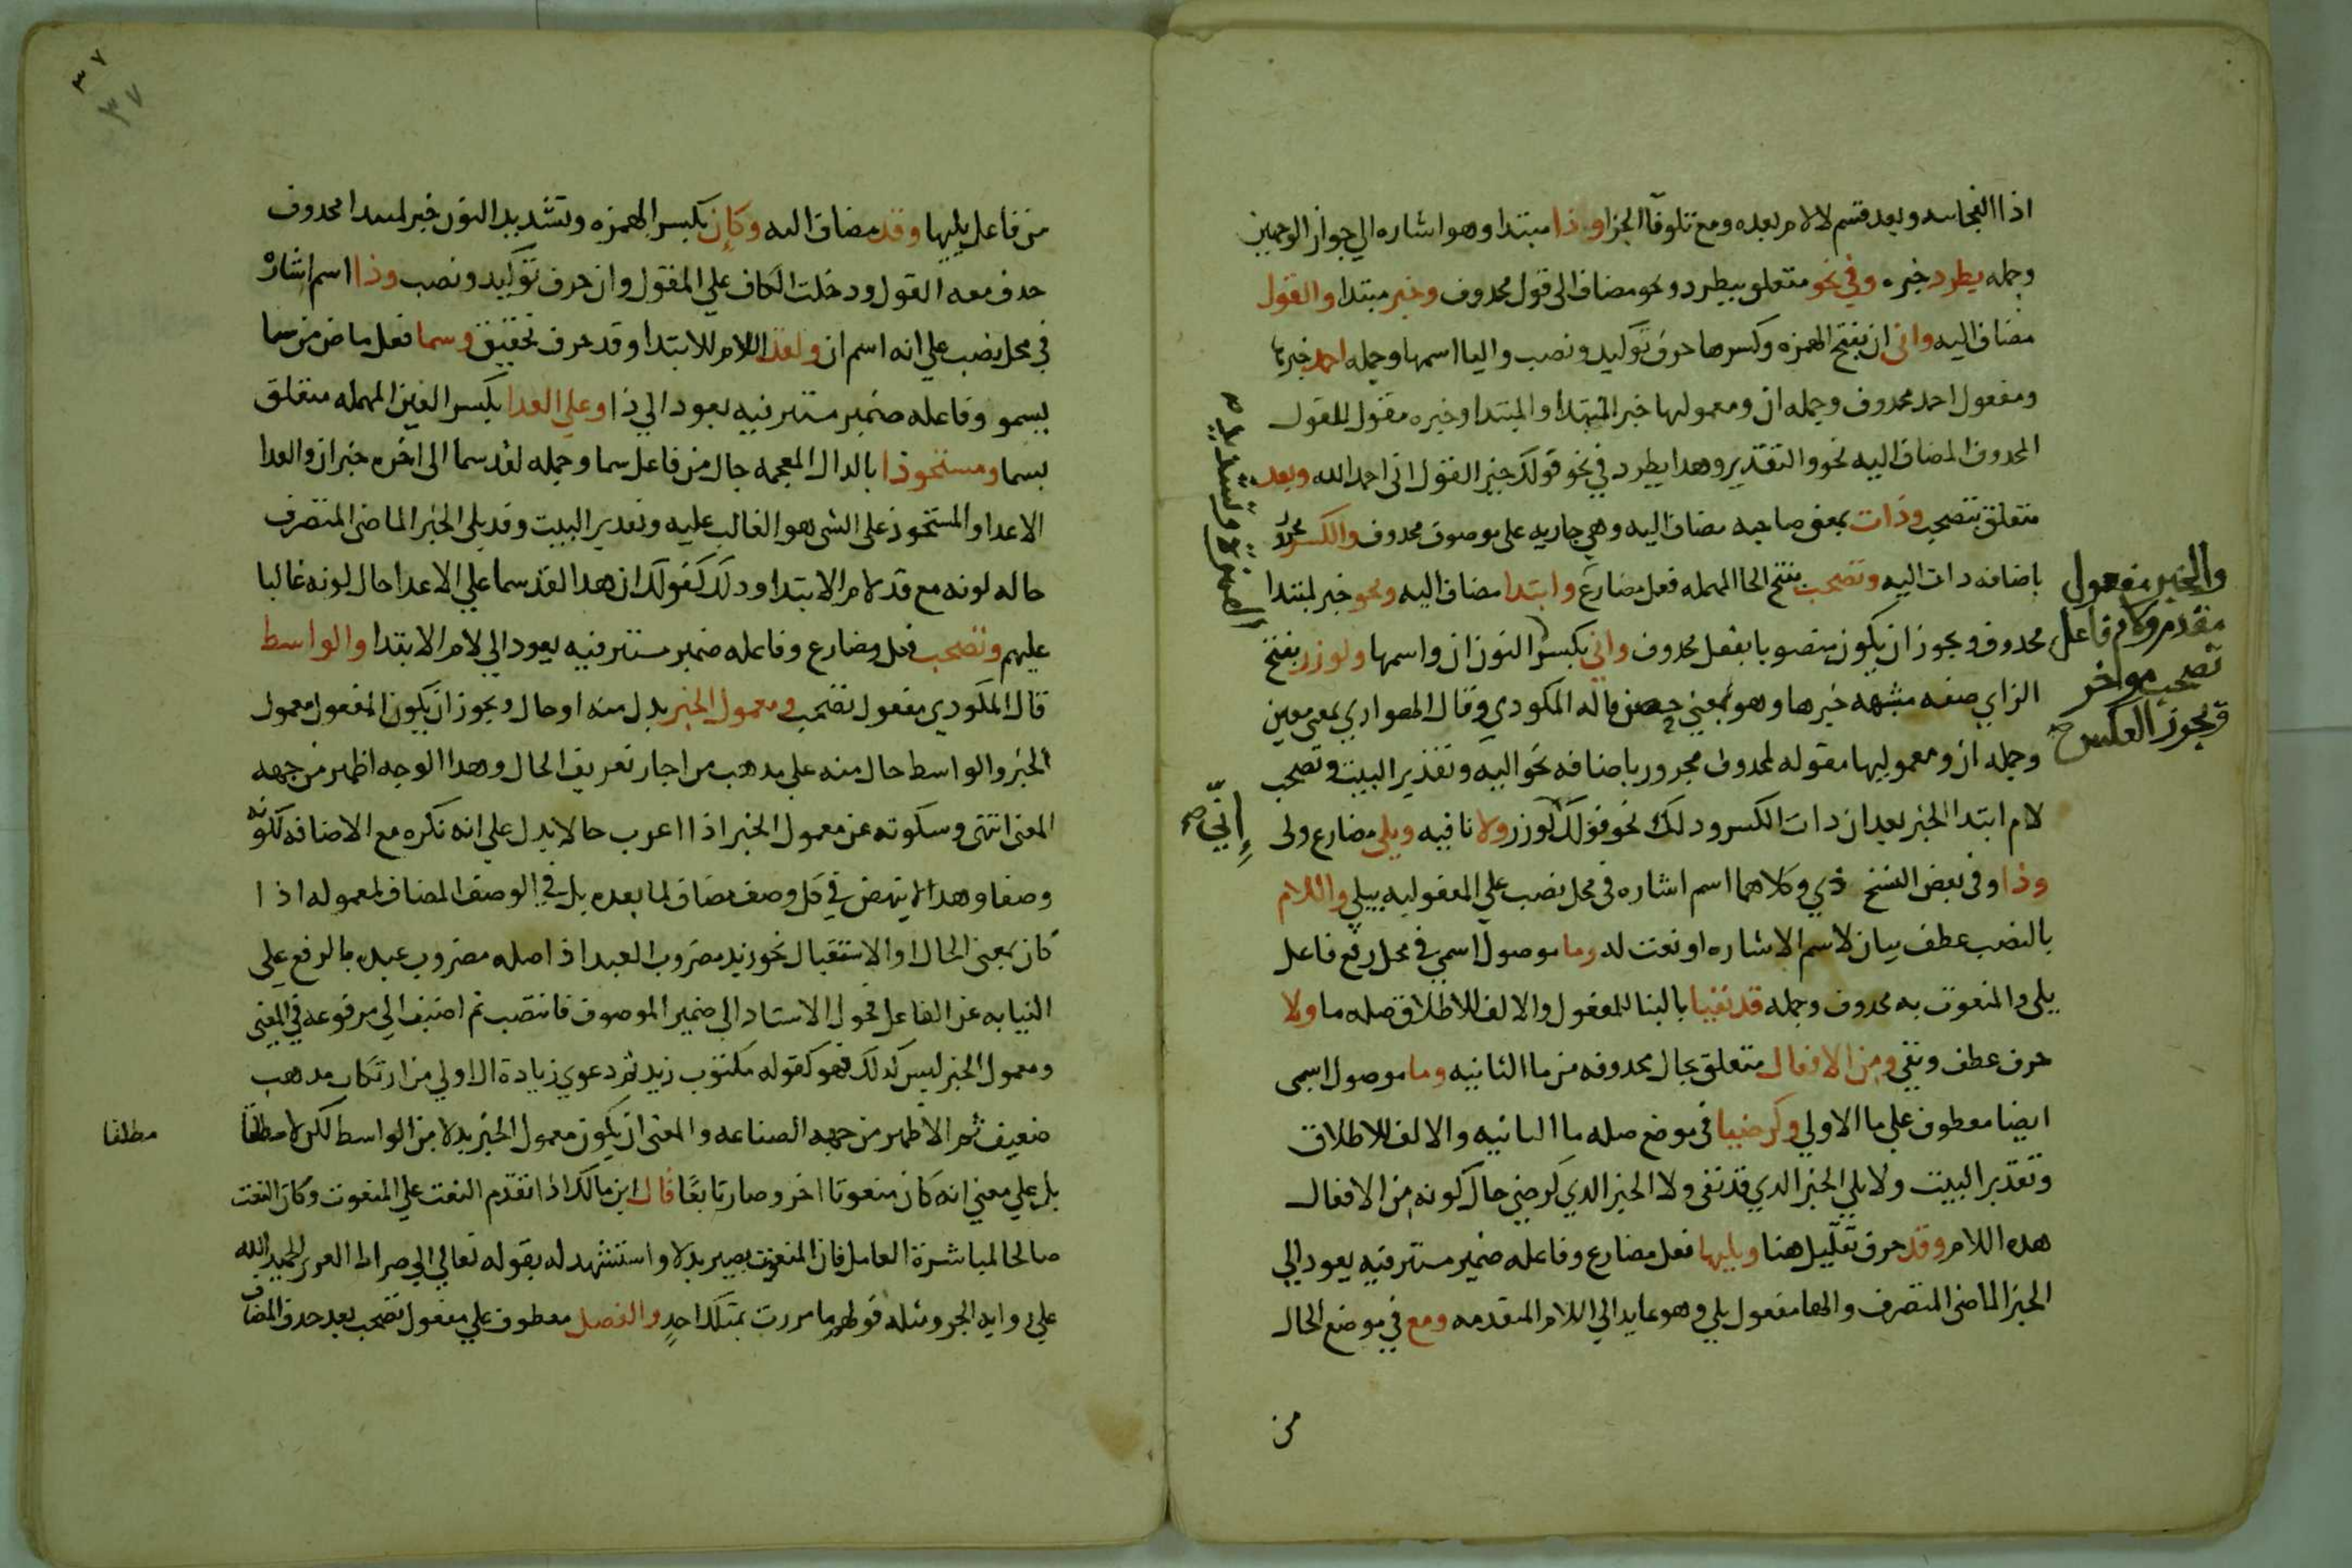 اذا الفجاىىه وبعد قسم لا لام بعده ومع تلو فا الجزا وذا مبتدا وهو اشاره الي جواز الوجهين
وجمله يطرد خبره وفي نحو متعلق بيطرد ونحو مضاف الى قول محدوف وخير مبتدا والقول
مضاف اليه واني ان بفتح الهمزه وكسرها حرف توكيد ونصب واليا اسمها وجمله احمد خبرها
ومفعول احمد محدوف وجمله ان ومعمولها خبر المبتدا والمبتدا وخبره مقول للقول
المحدوف المضاف اليه نحو والتقدير وهدا يطرد في نحو قولك خير القول اني احمد الله وبعد
متعلق بتصحب وذات بمعني صاحبه مضاف اليه وهي جاريه على موصوف محدوف والكسر مجرور
باضافه دات اليه وتصحب بفتح الحا المهمله فعل مضارع وابتدا مضاف اليه ونحو خبر لمبتدا
محدوف ويجوز ان يكون منصوبا بفعل محدوف واني بكسر النون ان واسمها ولوزر بفتح
الزاي صفه مشبهه خبرها وهو بمعني حصن قاله المكودي وقال الهواري بمعني معين
وجمله ان ومعموليها مقوله لمحدوف مجرور باضافه نحو اليه وتقدير البيت وتصحب
لام ابتدا الخبر بعد ان دات الكسر ودلك نحو قولك لوزر ولا نافيه ويلي مضارع ولى
وذا وفي بعض النسخ ذي وكلاهما اسم اشاره في محل نصب علي المفعوليه بيلي واللام
بالنصب عطف بيان لاسم الاشاره او نعت له وما موصول اسمي في محل رفع فاعل
يلي والمنعوت به محدوف وجمله قد نفيا بالبنا للمفعول والالف للاطلاق صله ما ولا
حرف عطف ونفي ومن الافعال متعلق بحال محدوفه من ما الثانيه وما موصول اسمى
ايضا معطوف علي ما الاولي وكرضيا في موضع صله ما الثانيه والالف للاطلاق
وتقدير البيت ولا يلي الخبر الدي قد نفى ولا الخبر الدي كرضي حال كونه من الافعال
هده اللام وقد حرف تقليل هنا ويليها فعل مضارع وفاعله ضمير مستتر فيه يعود الي
الخبر الماضي المتصرف والها مفعول يلي وهو عايد الي اللام المتقدمه ومع في موضع الحال
من
والخبر مفعول
مقدم ولام فاعل
تصحب مواخر
ويجوز العكس صح
إنّي صح
٣٧
٣٧
من فاعل يليها وقد مضاف اليه وكإن بكسر الهمزه وتشديد النون خبر لمبتدا محدوف
حدف معه القول ودخلت الكاف علي المقول وان حرف توكيد ونصب وذا اسم اشارة
في محل نصب علي انه اسم ان ولقد اللام للابتدا وقد حرف تحقيق وسما فعل ماض من سما
يسمو وفاعله ضمير مستتر فيه يعود الي ذا وعلي العدا بكسر العين المهمله متعلق
بسما ومستحوذا بالدال المعجمه حال من فاعل سما وجمله لقد سما الى اخره خبر ان والعدا
الاعدا والمستحوذ على الشي هو الغالب عليه وتقدير البيت وقد يلي الخبر الماضي المتصرف
حاله كونه مع قد لام الابتدا ودلك كقولك ان هدا لقد سما علي الاعدا حال كونه غالبا
عليهم وتصحب فعل مضارع وفاعله ضمير مستتر فيه يعود الي لام الابتدا والواسط
قال المكودي مفعول تصحب ومعمول الخبر بدل منه او حال ويجوز ان يكون المفعول معمول
الخبر والواسط حال منه علي مدهب من اجاز تعريف الحال وهدا الوجه اظهر من جهه
المعني انتهي وسكوته عن معمول الخبر اذا اعرب حالا يدل علي انه نكره مع الاضافه لكونه
وصفا وهدا لا ينهض في كل وصف مضاف لما بعده بل في الوصف المضاف لمعموله اذا
كان بمعني الحال او الاستقبال نحو زيد مضروب العبد اذ اصله مضروب عبده بالرفع علي
النيابه عن الفاعل فحول الاسناد الي ضمير الموصوف فانتصب ثم اضيف الي مرفوعه في المعني
ومعمول الخبر ليس كدلك فهو كقوله مكتوب زيد ثم دعوي زيادة ال اولي من ارتكاب مدهب
ضعيف ثم الاظهر من جهه الصناعه والمعني ان يكون معمول الخبر بدلا من الواسط لكن لا مطلقا
بل علي معني انه كان منعوتا اخر وصار تابعا قال ابن مالك اذا تقدم النعت علي المنعوت وكان النعت
صالحا لمباشرة العامل فان المنعوت يصير بدلا واستشهد له بقوله تعالي الي صراط العزيز الحميد الله
علي روايه الجر ومثله قولهم ما مررت بمثلك احدٍ والفصل معطوف علي مفعول تصحب بعد حدف المضاف
مطلقا